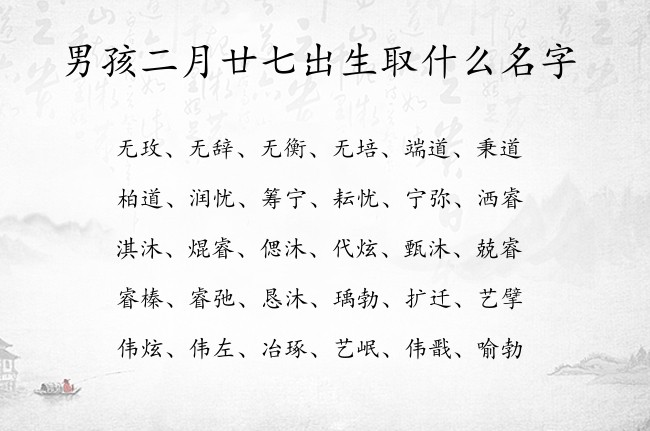 男孩二月廿七出生取什么名字
无玫、无辞、无衡、无培、端道、秉道
柏道、润忧、筹宁、耘忧、宁弥、洒睿
淇沐、焜睿、偲沐、代炫、甄沐、兢睿
睿榛、睿弛、恳沐、瑀勃、扩迁、艺擘
伟炫、伟左、冶琢、艺岷、伟戬、喻勃